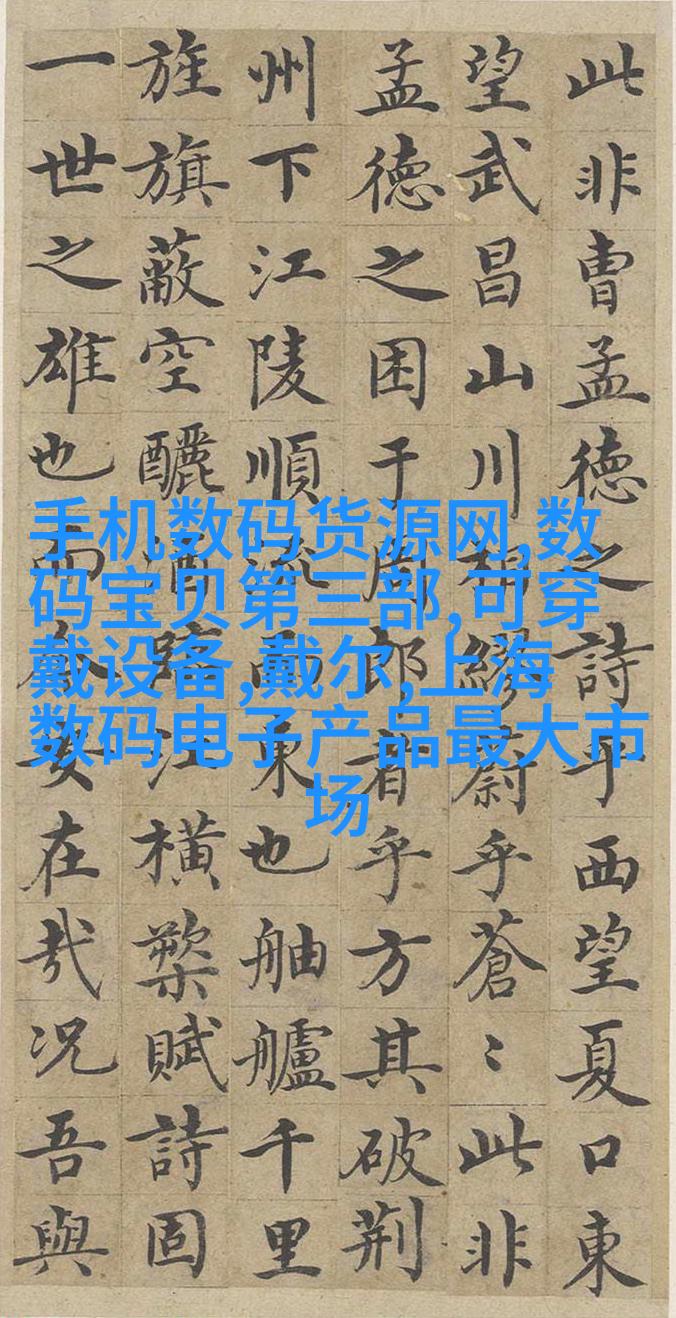 此非曹孟德之詩乎西望夏口東
望武昌山川相繆蔚乎蒼〻此非
孟德之困于周郎者乎方其破荆
州下江陵順流而東也舳艫千里
旌旗蔽空釃酒臨江横槊賦詩固
一世之雄也而今安在哉况吾與
手机数码货源网,数
码宝贝第三部,可穿
戴设备,戴尔,上海
数码电子产品最大市
场